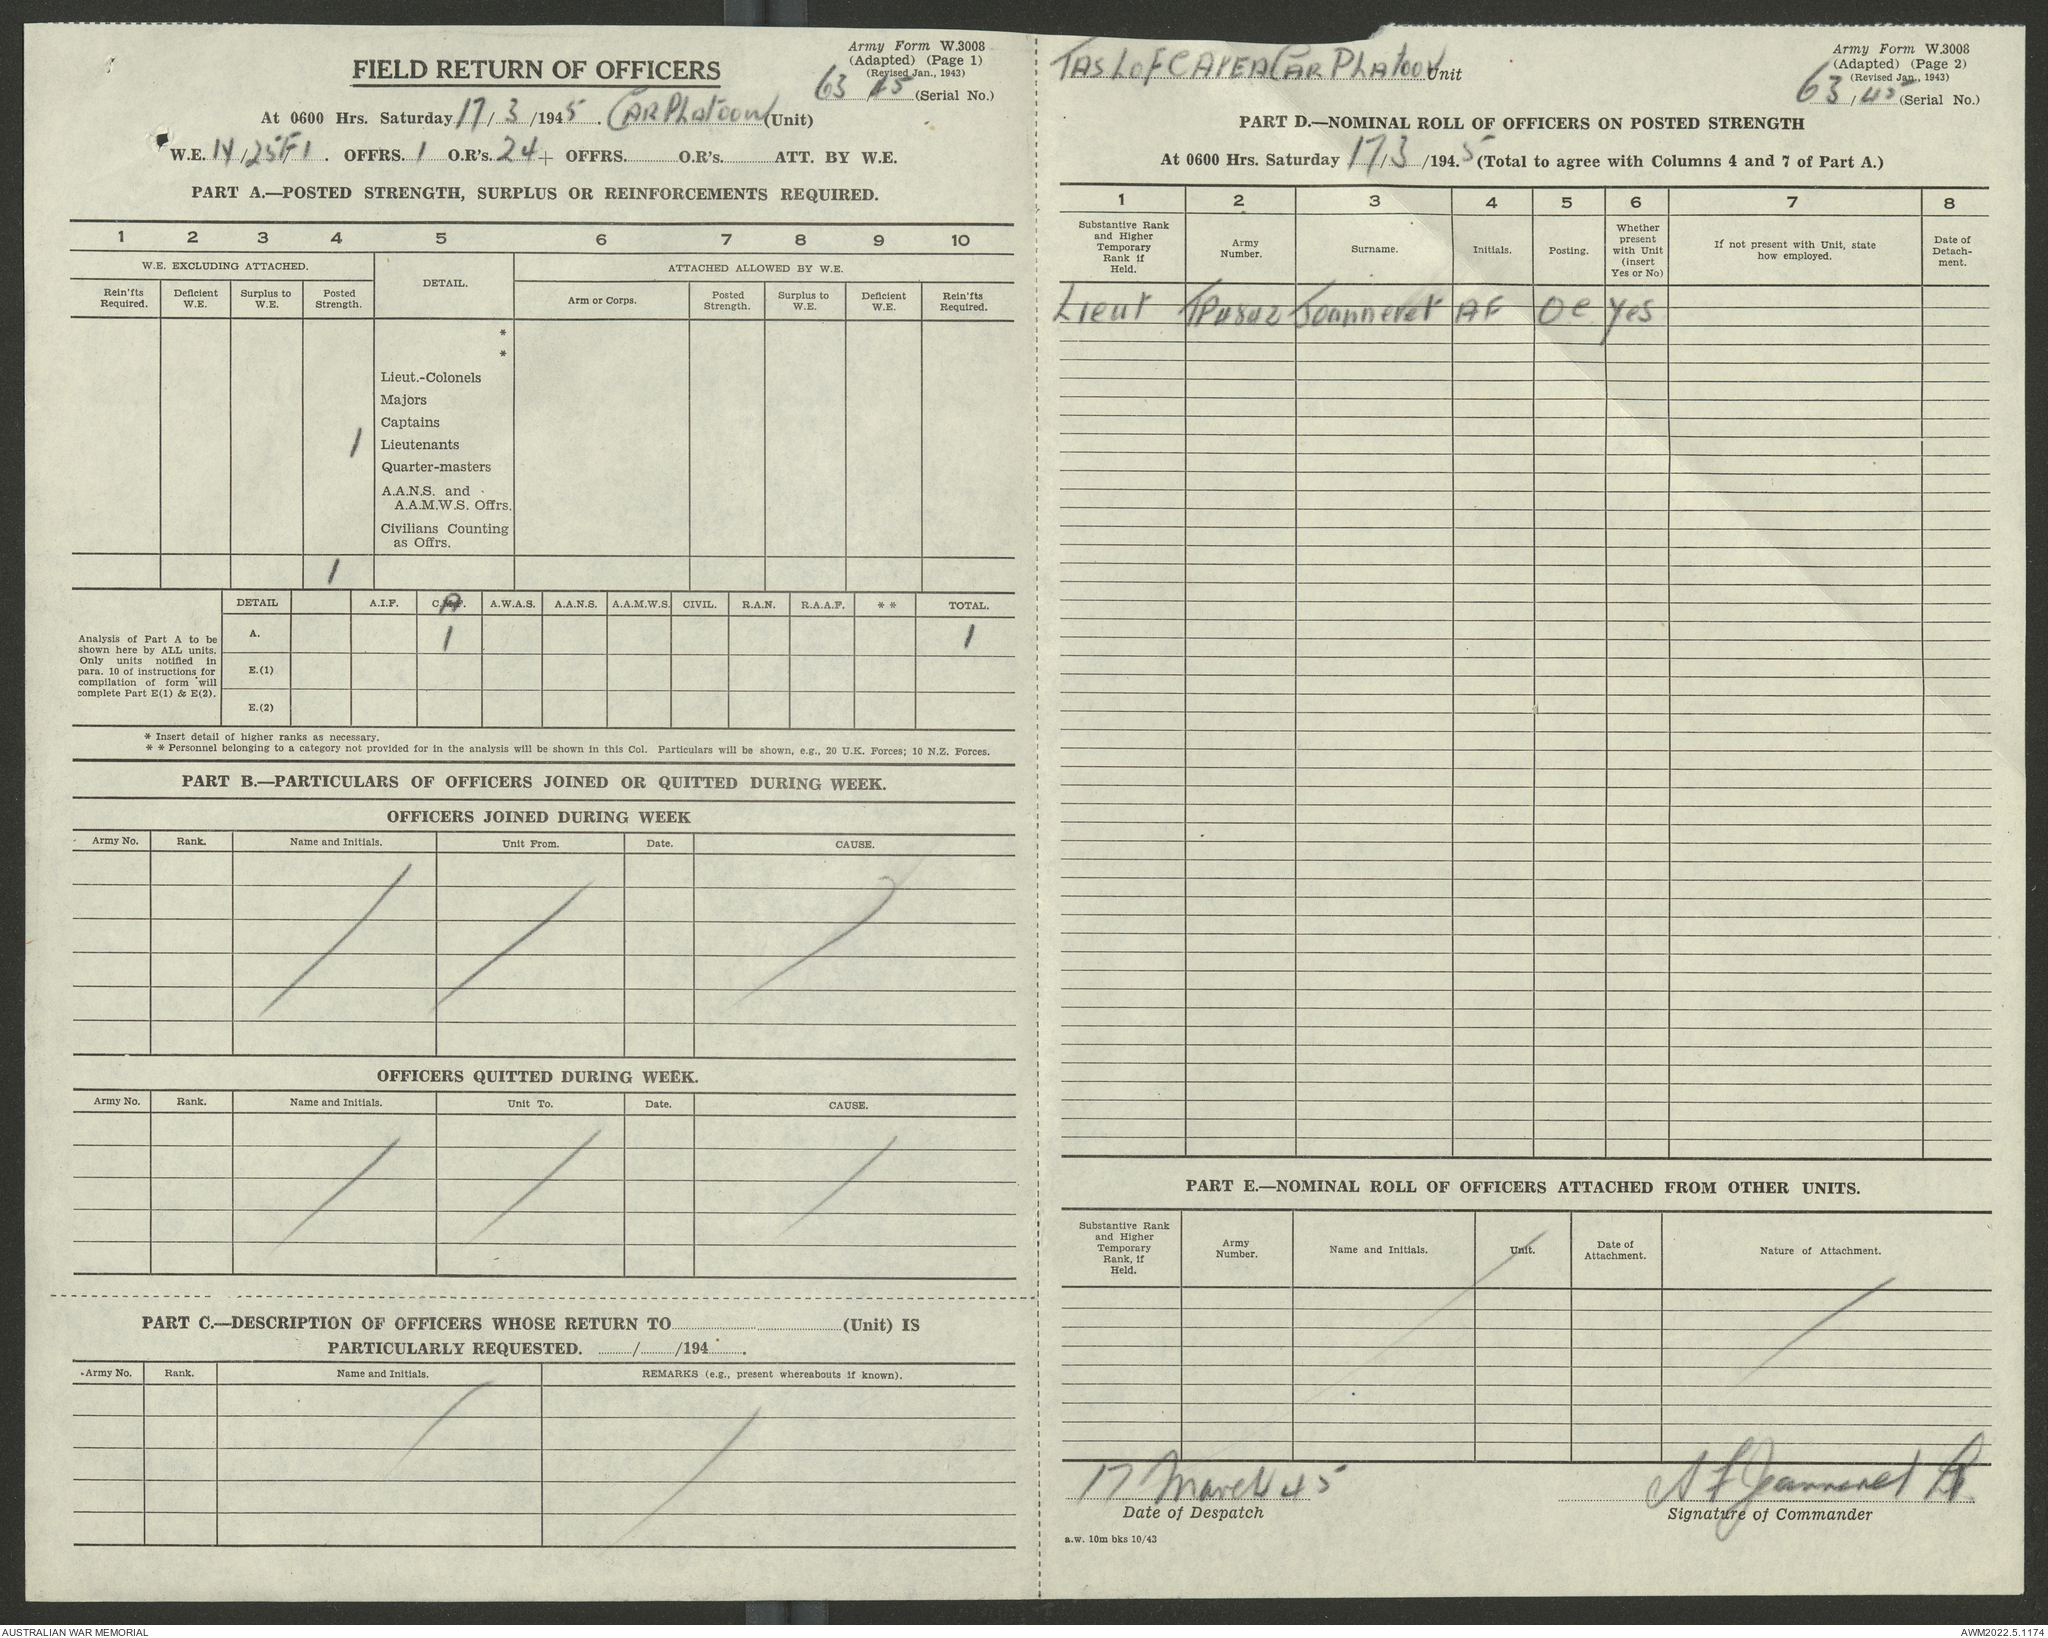 Army Form W.3008
(Adapted) (Page 1)
(Revised Jan., 1943)
63/45 (Serial No.)
FIELD RETURN OF OFFICERS
At 0600 Hrs. Saturday 17/3/1945. CAR PLATOON (Unit)
W.E. 14/25F/1. OFFRS. 1 O.R's. 24 + OFFRS. O.R's. ATT. BY W.E.
PART A.—POSTED STRENGTH, SURPLUS OR REINFORCEMENTS REQUIRED.
1 2 3 4 5 6 7 8 9 10
W.E. EXCLUDING ATTACHED. DETAIL. ATTACHED ALLOWED BY W.E.
Rein'fts Required. Deficient W.E. Surplus to W.E. Posted Strength. Arm or Corps. Posted Strength. Surplus to W.E. Deficient W.E. Rein'fts Required.
*
*
Lieut.-Colonels
Majors
Captains
1 Lieutenants
Quarter-masters
A.A.N.S. and
A.A.M.W.S. Offrs.
Civilians Counting
as Offrs.
1
DETAIL A.I.F. C.M.F. A.W.A.S. A.A.N.S. A.A.M.W.S. CIVIL. R.A.N. R.A.A.F. * * TOTAL.
Analysis of Part A to be
shown here by ALL units.
Only units notified in
para. 10 of instructions for
compilation of form will
complete Part E(1) & E(2).
A. 1 1
E.(1)
E.(2)
* Insert detail of higher ranks as necessary.
* * Personnel belonging to a category not provided for in the analysis will be shown in this Col. Particulars will be shown, e.g., 20 U.K. Forces; 10 N.Z. Forces.
PART B.—PARTICULARS OF OFFICERS JOINED OR QUITTED DURING WEEK.
OFFICERS JOINED DURING WEEK
Army No. Rank. Name and Initials. Unit From. Date. CAUSE.
OFFICERS QUITTED DURING WEEK.
Army No. Rank. Name and Initials. Unit To. Date. CAUSE.
PART C.—DESCRIPTION OF OFFICERS WHOSE RETURN TO (Unit) IS
PARTICULARLY REQUESTED. / /194 .
Army No. Rank. Name and Initials. REMARKS (e.g., present whereabouts if known).
TAS L of C AREA CAR PLATOON Unit
Army Form W.3008
(Adapted) (Page 2)
(Revised Jan., 1943)
63/45 (Serial No.)
PART D.—NOMINAL ROLL OF OFFICERS ON POSTED STRENGTH
At 0600 Hrs. Saturday 17/3/194.5 (Total to agree with Columns 4 and 7 of Part A.)
1 2 3 4 5 6 7 8
Substantive Rank and Higher Temporary Rank if Held. Army Number. Surname. Initials. Posting. Whether present with Unit (insert Yes or No) If not present with Unit, state how employed. Date of Detach-ment.
Lieut TP4842 Jeanneret AF OC Yes
PART E.—NOMINAL ROLL OF OFFICERS ATTACHED FROM OTHER UNITS.
Substantive Rank and Higher Temporary Rank, if Held. Army Number. Name and Initials. Unit. Date of Attachment. Nature of Attachment.
17 March 45
Date of Despatch
A F Jeanneret Lt
Signature of Commander
a.w. 10m bks 10/43
AUSTRALIAN WAR MEMORIAL
AWM2022.5.1174